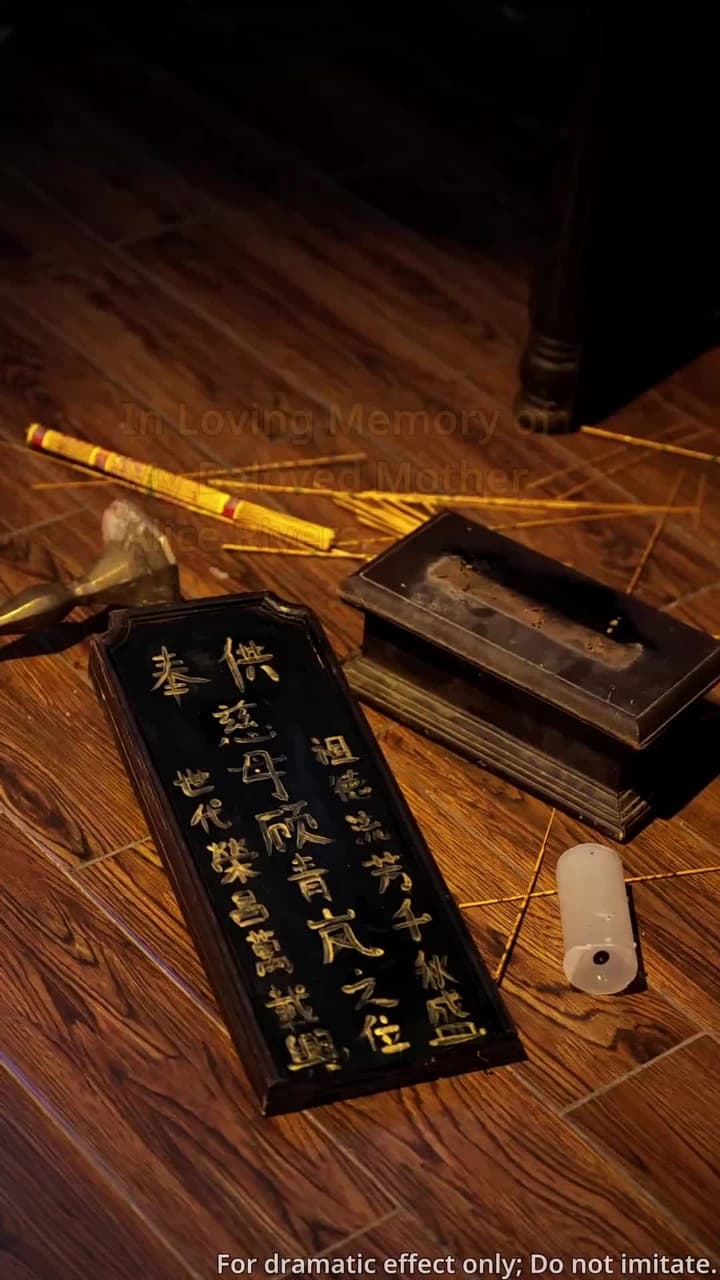 In Loving Memory of
My Beloved Mother
Alice Rivers
供奉
祖德流芳千秋盛
慈母顾青岚之位
世代榮昌萬載興
For dramatic effect only; Do not imitate.